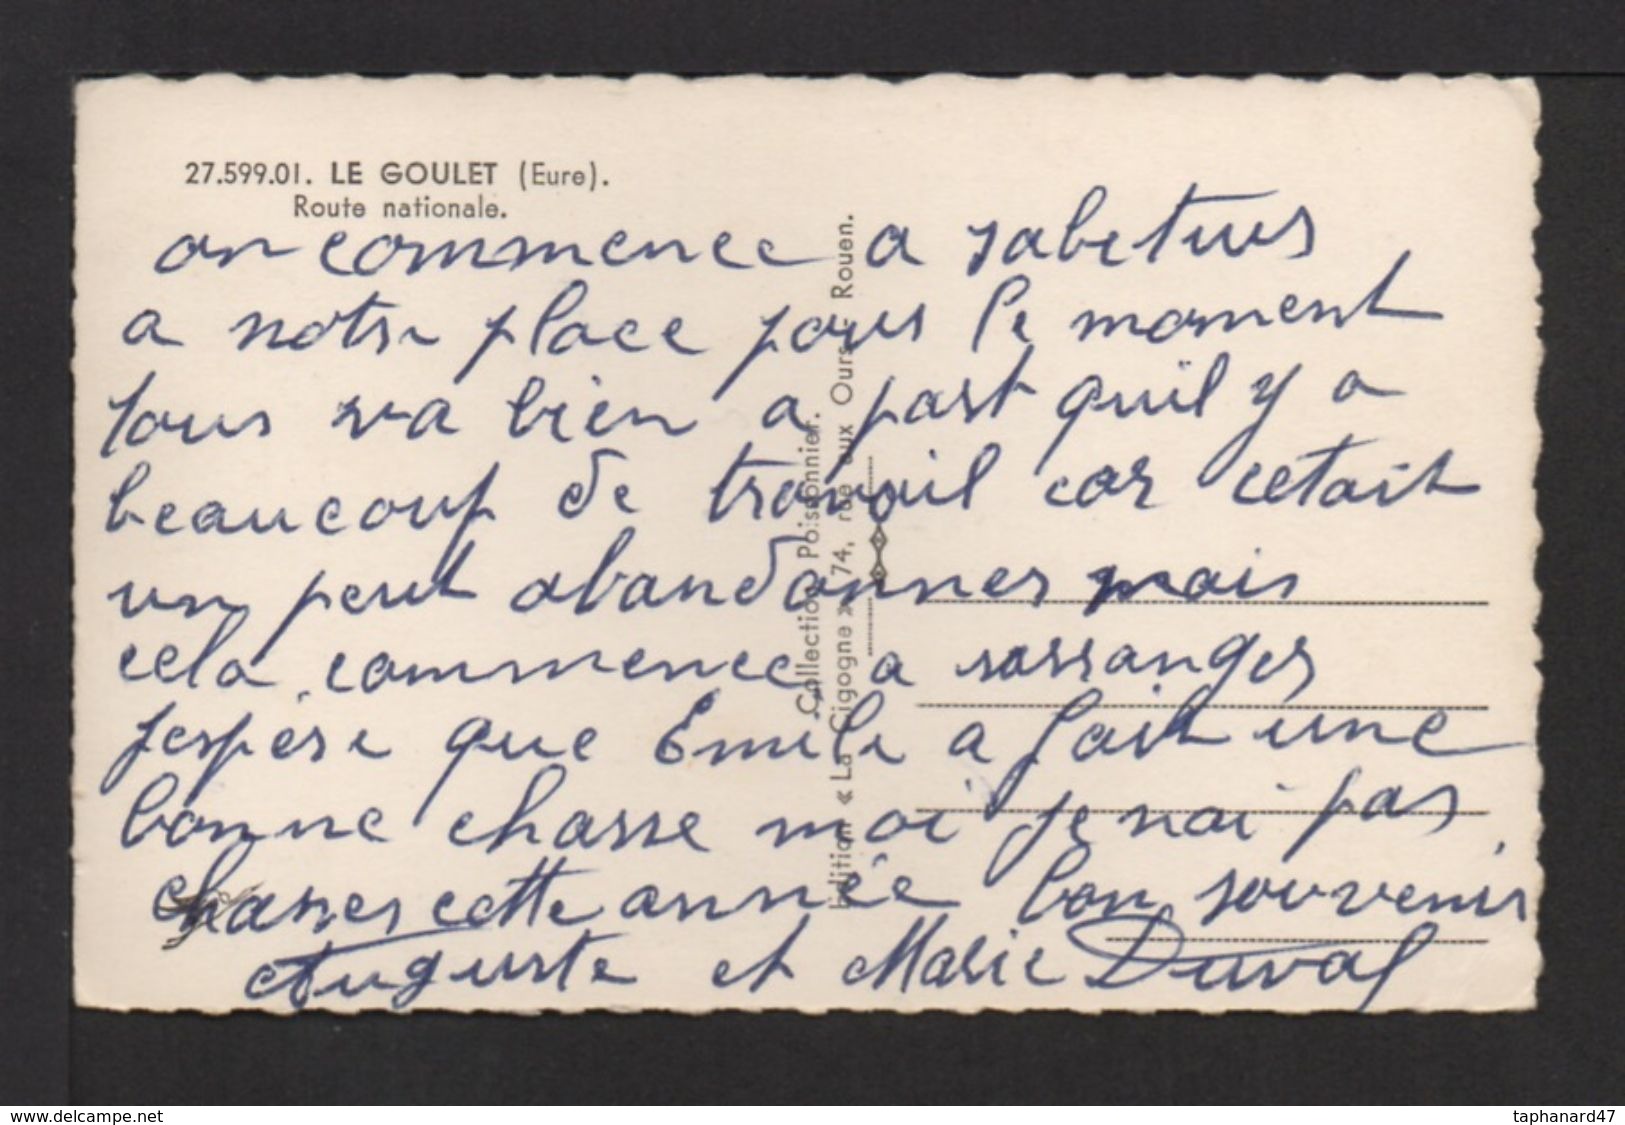 27.599.01. LE GOULET (Eure).
Route nationale.
on commence a sabituer
a notre place pour le moment
tous va bien a part quil y a
beaucoup de travail car cetait
un peut abandonner mais
cela commence a sarranger
Jespère que Emile a fait une
bonne chasse moi je nai pas
chasser cette année bon souvenir
Auguste et Marie Duval
Collection Poissonnier.
Edition « La Cigogne » 74, rue aux Ours - Rouen.
www.delcampe.net
taphanard47